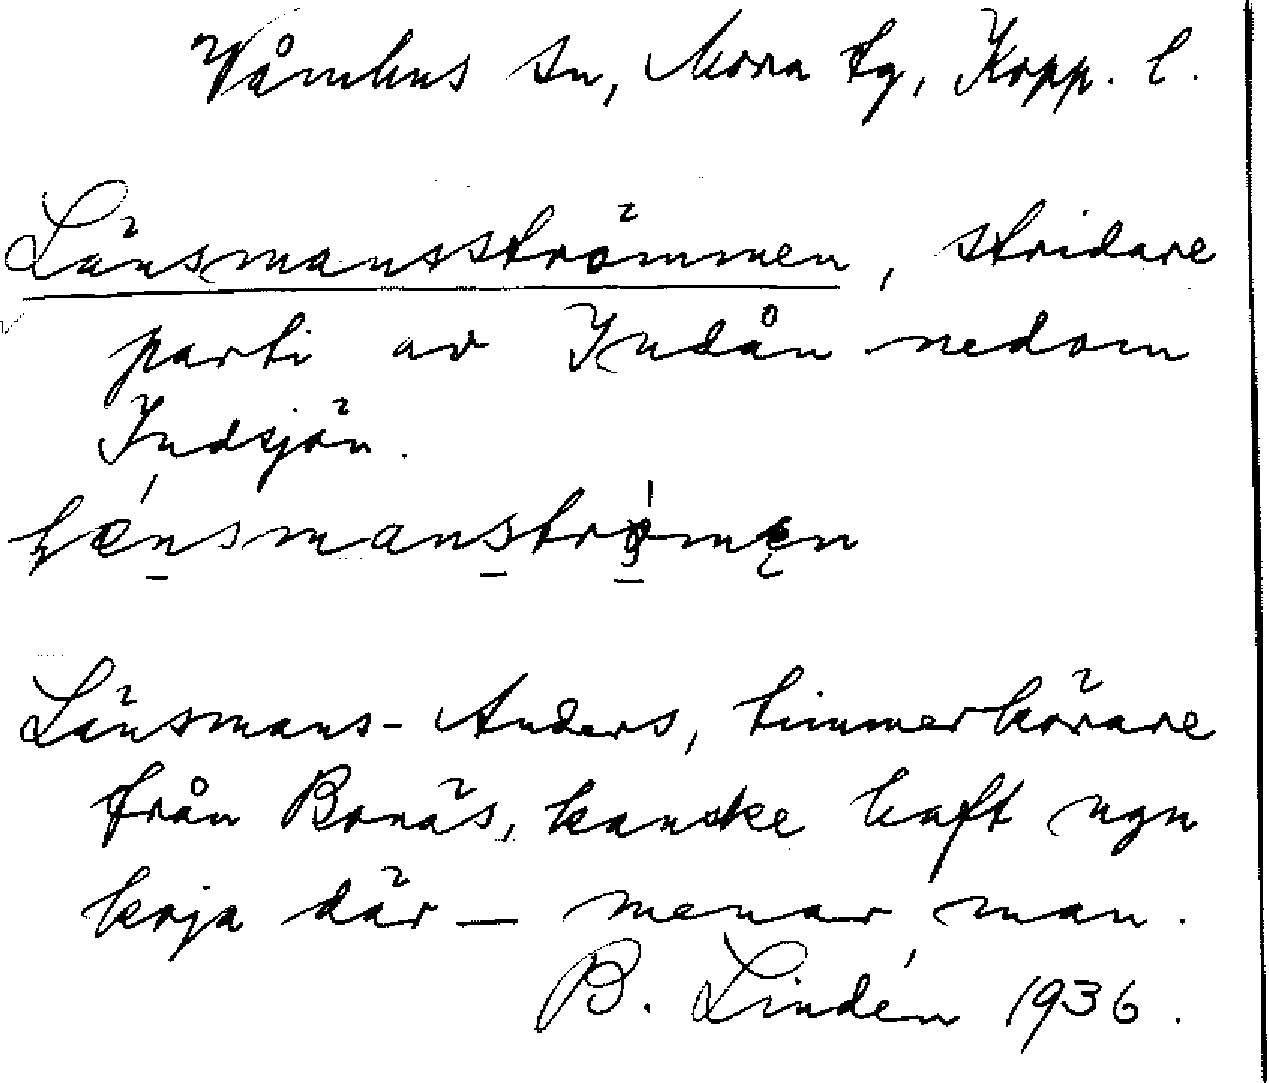 Våmhus sn, Mora tg, Kopp. l.
Länsmansströmmen, stridare
parti av Indån nedom
Indsjön.
Länsmans-Anders, timmerkörare
från Bonäs, kanske haft ngn
koja där – menar man.
B. Lindén 1936.